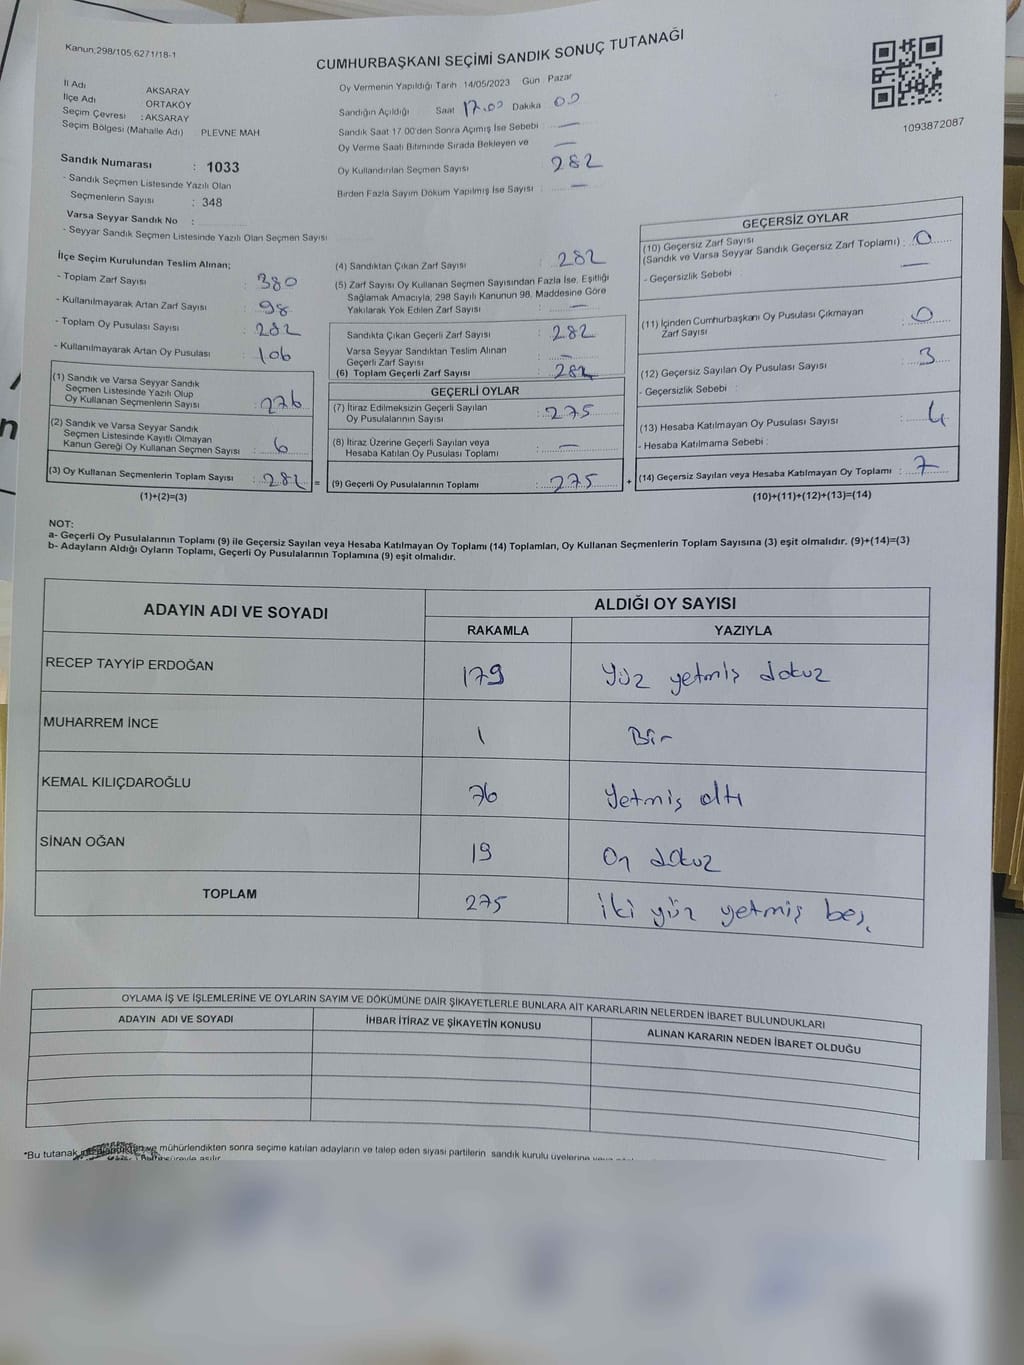 Kanun;298/105,6271/18-1
CUMHURBAŞKANI SEÇİMİ SANDIK SONUÇ TUTANAĞI
1093872087
İl Adı AKSARAY
İlçe Adı ORTAKÖY
Seçim Çevresi : AKSARAY
Seçim Bölgesi (Mahalle Adı) PLEVNE MAH.
Sandık Numarası : 1033
- Sandık Seçmen Listesinde Yazılı Olan
Seçmenlerin Sayısı : 348
Varsa Seyyar Sandık No :
- Seyyar Sandık Seçmen Listesinde Yazılı Olan Seçmen Sayısı
Oy Vermenin Yapıldığı Tarih 14/05/2023 Gün Pazar
Sandığın Açıldığı Saat 17.00 Dakika 00
Sandık Saat 17 00'den Sonra Açımış İse Sebebi : —
Oy Verme Saati Bitiminde Sırada Bekleyen ve —
Oy Kullandırılan Seçmen Sayısı 282
Birden Fazla Sayım Döküm Yapılmış İse Sayısı : —
İlçe Seçim Kurulundan Teslim Alınan;
- Toplam Zarf Sayısı : 380
- Kullanılmayarak Artan Zarf Sayısı : 98
- Toplam Oy Pusulası Sayısı : 282
- Kullanılmayarak Artan Oy Pusulası : 106
(1) Sandık ve Varsa Seyyar Sandık
Seçmen Listesinde Yazılı Olup
Oy Kullanan Seçmenlerin Sayısı : 276
(2) Sandık ve Varsa Seyyar Sandık
Seçmen Listesinde Kayıtlı Olmayan
Kanun Gereği Oy Kullanan Seçmen Sayısı : 6
(3) Oy Kullanan Seçmenlerin Toplam Sayısı : 282 =
(1)+(2)=(3)
(4) Sandıktan Çıkan Zarf Sayısı : 282
(5) Zarf Sayısı Oy Kullanan Seçmen Sayısından Fazla İse, Eşitliği
Sağlamak Amacıyla, 298 Sayılı Kanunun 98. Maddesine Göre
Yakılarak Yok Edilen Zarf Sayısı : —
Sandıkta Çıkan Geçerli Zarf Sayısı : 282
Varsa Seyyar Sandıktan Teslim Alınan
Geçerli Zarf Sayısı : —
(6) Toplam Geçerli Zarf Sayısı : 282
GEÇERLİ OYLAR
(7) İtiraz Edilmeksizin Geçerli Sayılan
Oy Pusulalarının Sayısı : 275
(8) İtiraz Üzerine Geçerli Sayılan veya
Hesaba Katılan Oy Pusulası Toplamı : —
(9) Geçerli Oy Pusulalarının Toplamı : 275 +
GEÇERSİZ OYLAR
(10) Geçersiz Zarf Sayısı
(Sandık ve Varsa Seyyar Sandık Geçersiz Zarf Toplamı) : 0
- Geçersizlik Sebebi : —
(11) İçinden Cumhurbaşkanı Oy Pusulası Çıkmayan
Zarf Sayısı : 0
(12) Geçersiz Sayılan Oy Pusulası Sayısı : 3
- Geçersizlik Sebebi :
(13) Hesaba Katılmayan Oy Pusulası Sayısı : 4
- Hesaba Katılmama Sebebi :
(14) Geçersiz Sayılan veya Hesaba Katılmayan Oy Toplamı : 7
(10)+(11)+(12)+(13)=(14)
NOT:
a- Geçerli Oy Pusulalarının Toplamı (9) ile Geçersiz Sayılan veya Hesaba Katılmayan Oy Toplamı (14) Toplamları, Oy Kullanan Seçmenlerin Toplam Sayısına (3) eşit olmalıdır. (9)+(14)=(3)
b- Adayların Aldığı Oyların Toplamı, Geçerli Oy Pusulalarının Toplamına (9) eşit olmalıdır.
ADAYIN ADI VE SOYADI ALDIĞI OY SAYISI
RAKAMLA YAZIYLA
RECEP TAYYİP ERDOĞAN 179 Yüz yetmiş dokuz
MUHARREM İNCE 1 Bir
KEMAL KILIÇDAROĞLU 76 Yetmiş altı
SİNAN OĞAN 19 On dokuz
TOPLAM 275 iki yüz yetmiş beş
OYLAMA İŞ VE İŞLEMLERİNE VE OYLARIN SAYIM VE DÖKÜMÜNE DAİR ŞİKAYETLERLE BUNLARA AİT KARARLARIN NELERDEN İBARET BULUNDUKLARI
ADAYIN ADI VE SOYADI İHBAR İTİRAZ VE ŞİKAYETİN KONUSU ALINAN KARARIN NEDEN İBARET OLDUĞU
*Bu tutanak ve mühürlendikten sonra seçime katılan adayların ve talep eden siyasi partilerin sandık kurulu üyelerine